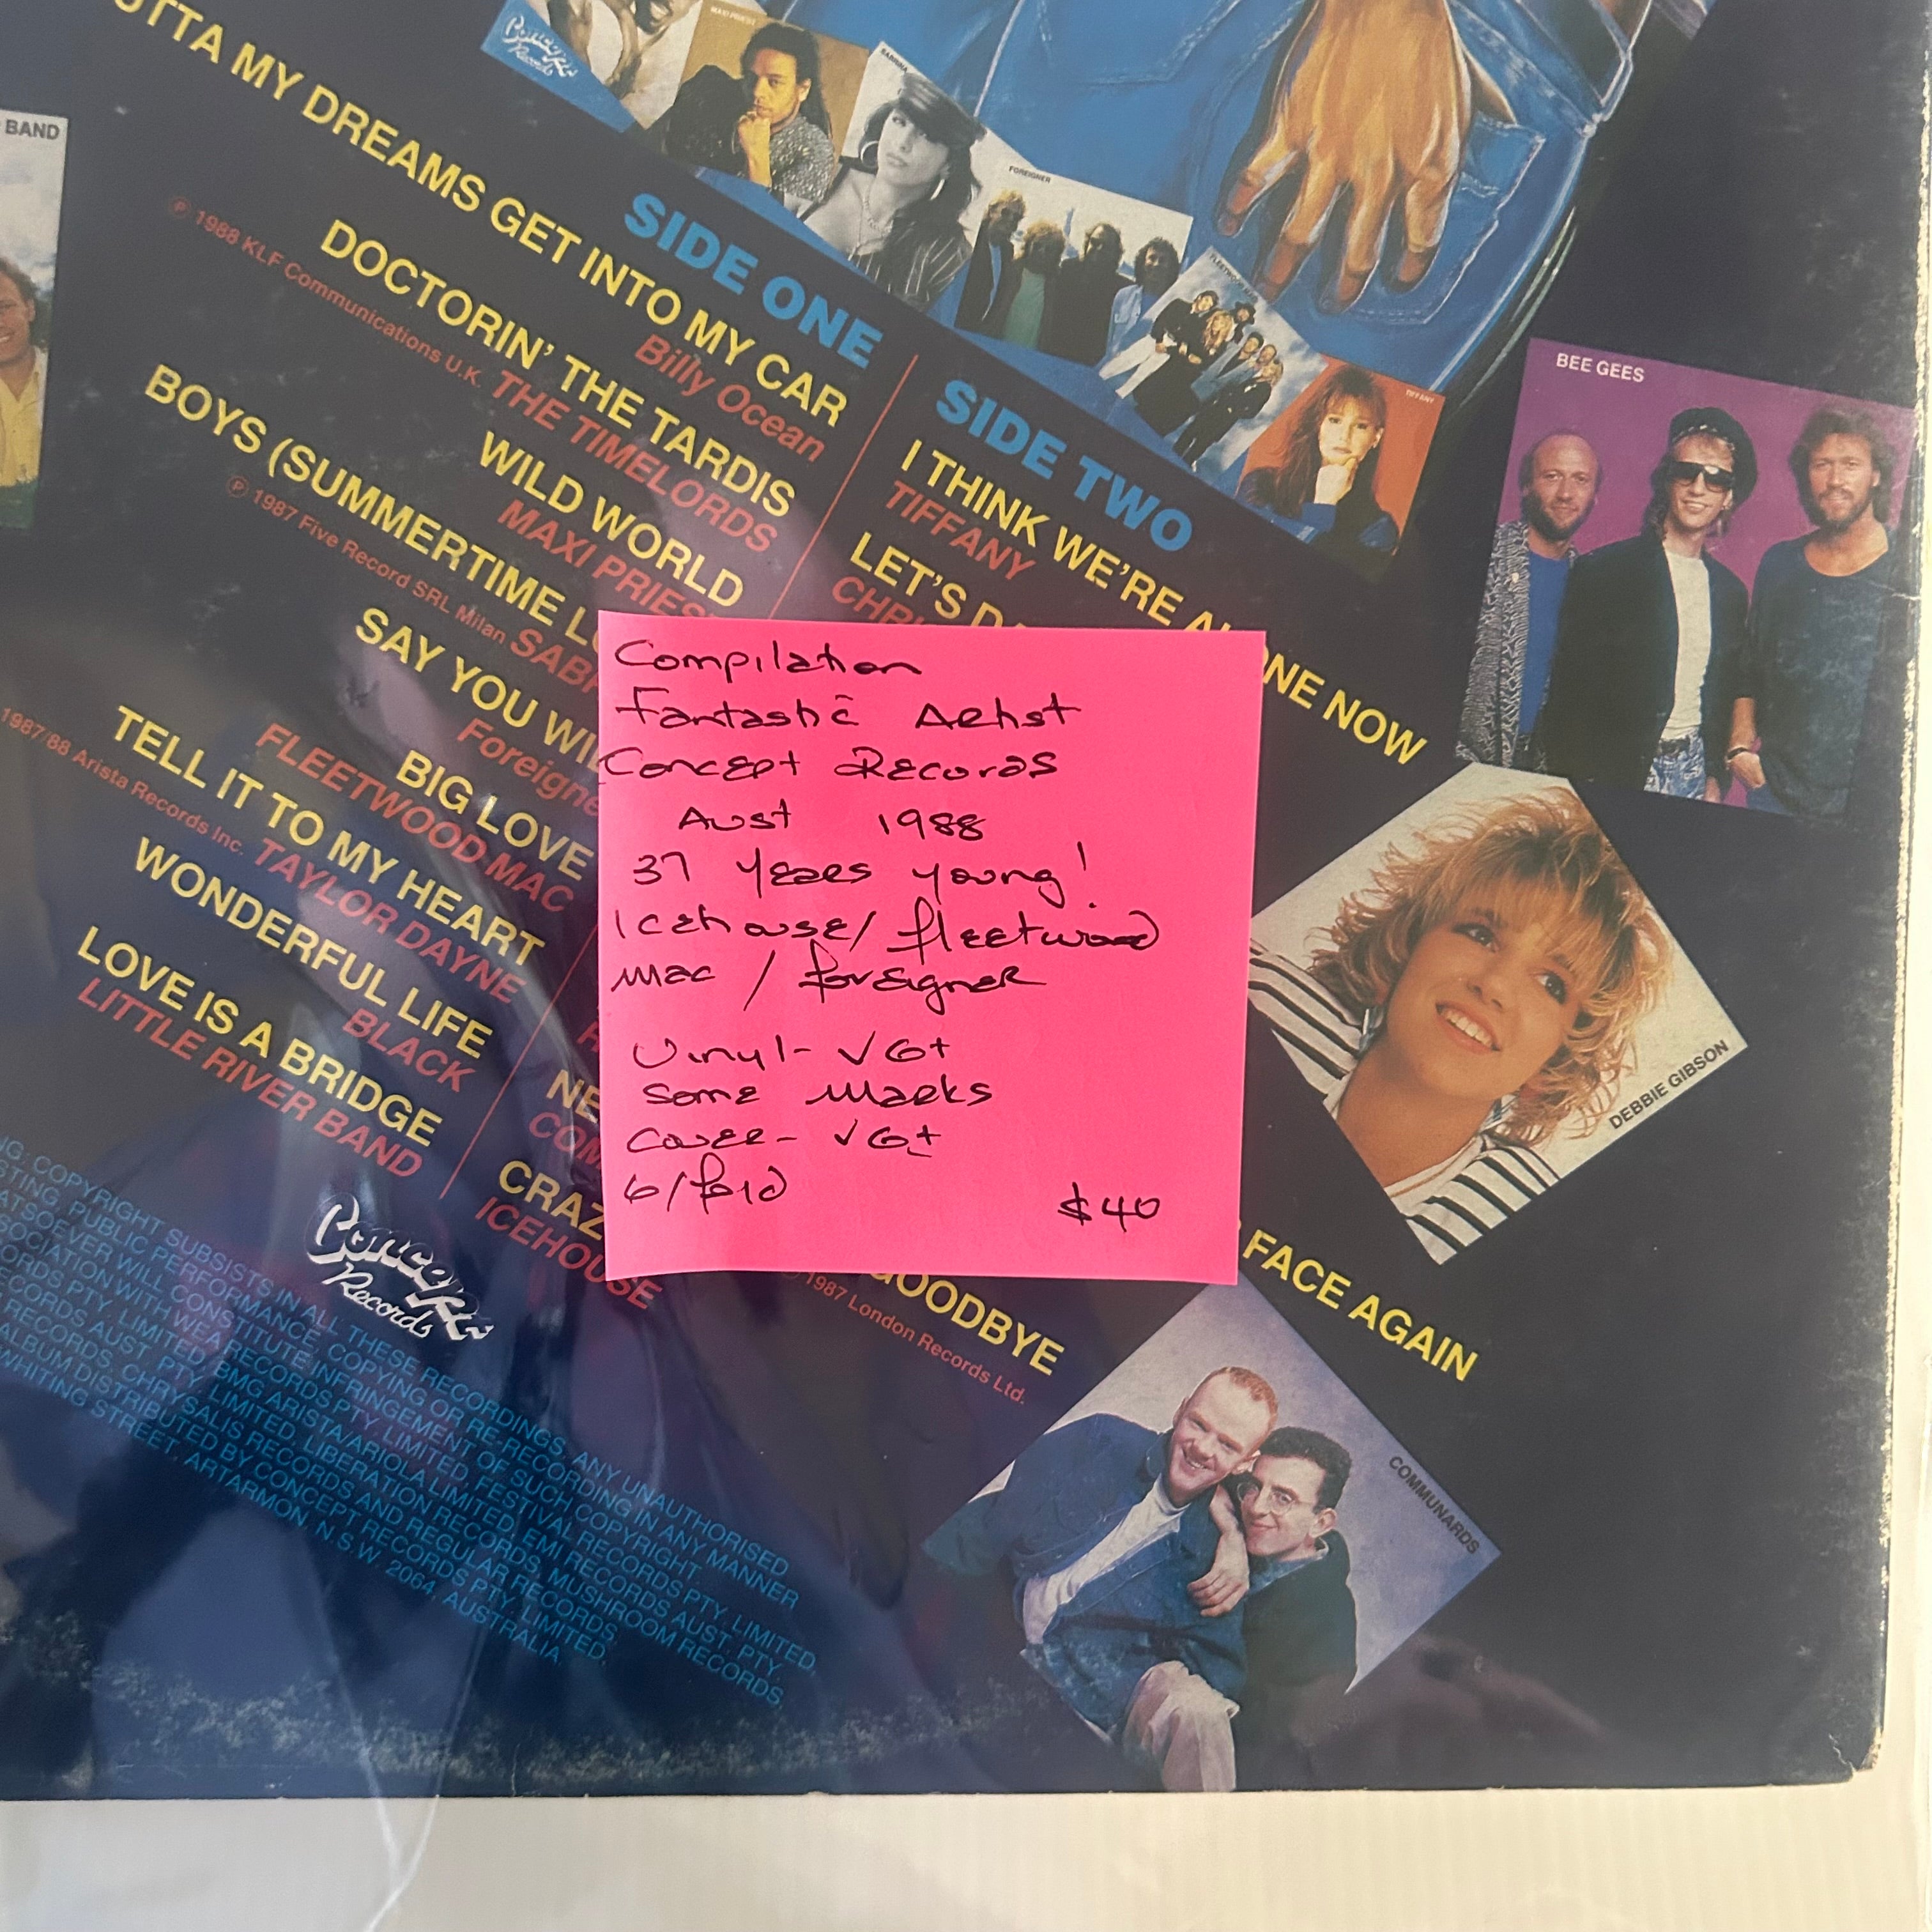 BAND
Concept
Records
MAXI PRIEST
SABRINA
FOREIGNER
FLEETWOOD MAC
TIFFANY
BEE GEES
SIDE ONE
OTTA MY DREAMS GET INTO MY CAR
Billy Ocean
DOCTORIN' THE TARDIS
℗ 1988 KLF Communications U.K. THE TIMELORDS
WILD WORLD
MAXI PRIEST
BOYS (SUMMERTIME LO
℗ 1987 Five Record SRL Milan SABR
SAY YOU WI
Foreigne
BIG LOVE
FLEETWOOD MAC
TELL IT TO MY HEART
1987/88 Arista Records Inc. TAYLOR DAYNE
WONDERFUL LIFE
BLACK
LOVE IS A BRIDGE
LITTLE RIVER BAND
SIDE TWO
I THINK WE'RE ALONE NOW
TIFFANY
LET'S D
CHRI
NE
COM
GOODBYE
℗ 1987 London Records Ltd.
CRAZ
ICEHOUSE
FACE AGAIN
Compilation
Fantastic Artist
Concept Records
Aust 1988
37 years young!
Icehouse/ fleetwood
mac / foreigner
Vinyl- VG+
Some marks
Cover- VG+
G/fold
$40
DEBBIE GIBSON
COMMUNARDS
Concept
Records
NG. COPYRIGHT SUBSISTS IN ALL THESE RECORDINGS. ANY UNAUTHORISED
STING PUBLIC PERFORMANCE, COPYING OR RE-RECORDING IN ANY MANNER
ATSOEVER WILL CONSTITUTE INFRINGEMENT OF SUCH COPYRIGHT.
SOCIATION WITH WEA RECORDS PTY. LIMITED, FESTIVAL RECORDS PTY. LIMITED,
ORDS PTY. LIMITED, BMG ARISTA/ARIOLA LIMITED, EMI RECORDS AUST. PTY.
CORDS AUST. PTY. LIMITED, LIBERATION RECORDS, MUSHROOM RECORDS,
RECORDS, CHRYSALIS RECORDS AND REGULAR RECORDS.
ALBUM DISTRIBUTED BY CONCEPT RECORDS PTY. LIMITED,
WHITING STREET, ARTARMON N.S.W. 2064, AUSTRALIA.